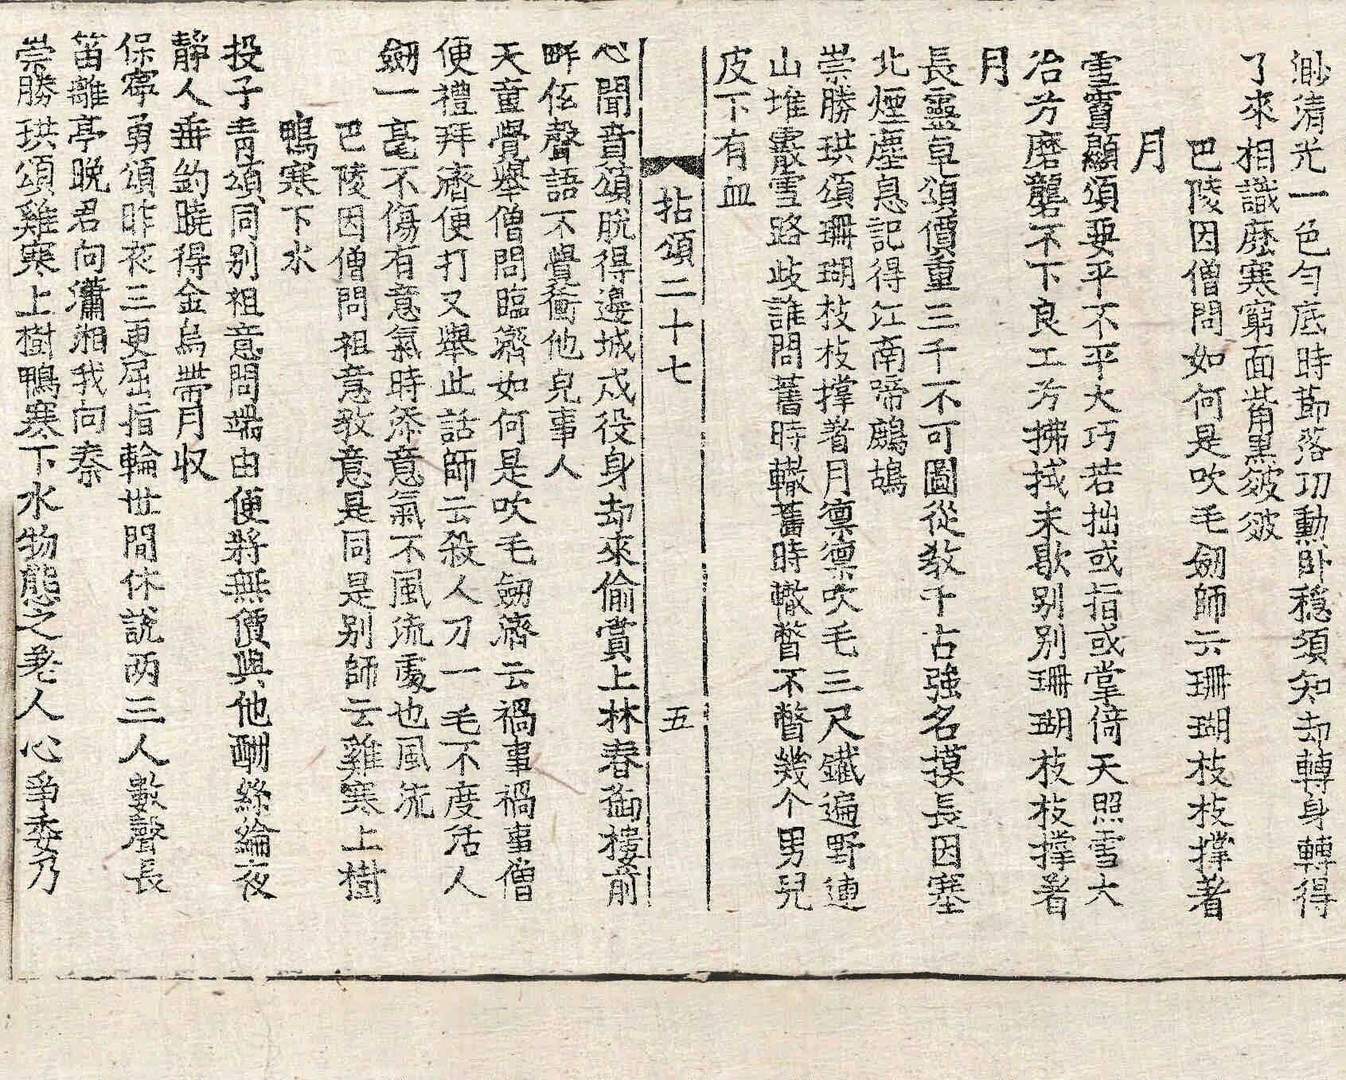 渺清光一色勻底時節落功勳卧穩須知却轉身轉得
了來相識麽寒窮面觜黑皴皴
巴陵因僧問如何是吹毛劒師云珊瑚枝枝撑著
月
雪竇顯頌要平不平大巧若拙或指或掌倚天照雪大
冶兮磨礱不下良工兮拂拭未歇别别珊瑚枝枝撑著
月
長靈卓頌價重三千不可圖從教千古強名摸長因塞
北煙塵息記得江南啼鷓鴣
崇勝珙頌珊瑚枝枝撑着月凛凛吹毛三尺鐵遍野連
山堆霰雪路歧誰問舊時轍舊時轍瞥不瞥幾个男兒
皮下有血
拈頌二十七　五
心聞賁頌脫得邊城戍役身却來偷賞上林春御樓前
畔伍聲語不覺衝他皃事人
天童覺舉僧問臨濟如何是吹毛劒濟云禍事禍事僧
便禮拜濟便打又舉此話師云殺人刀一毛不度活人
劒一毫不傷有意氣時添意氣不風流處也風流
巴陵因僧問祖意教意是同是别師云雞寒上樹
鴨寒下水
投子青頌同别祖意問端由便將無價與他酬絲綸夜
靜人垂釣曉得金烏帶月収
保寧勇頌昨夜三更屈指輪世間休說两三人數聲長
笛離亭晚君向瀟湘我向秦
崇勝珙頌雞寒上樹鴨寒下水物態之老人心爭委乃